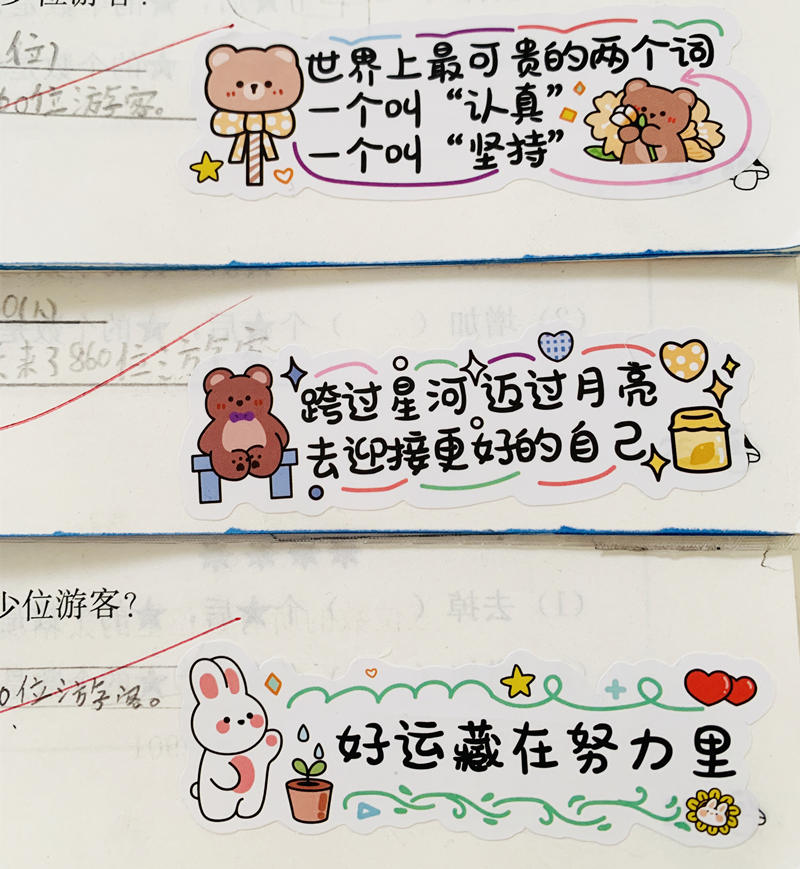 位游客?
位)
60位游客。
世界上最可贵的两个词
一个叫“认真”
一个叫“坚持”
0(人)
天来了860位游客
跨过星河迈过月亮
去迎接更好的自己
少位游客?
0位游客。
好运藏在努力里